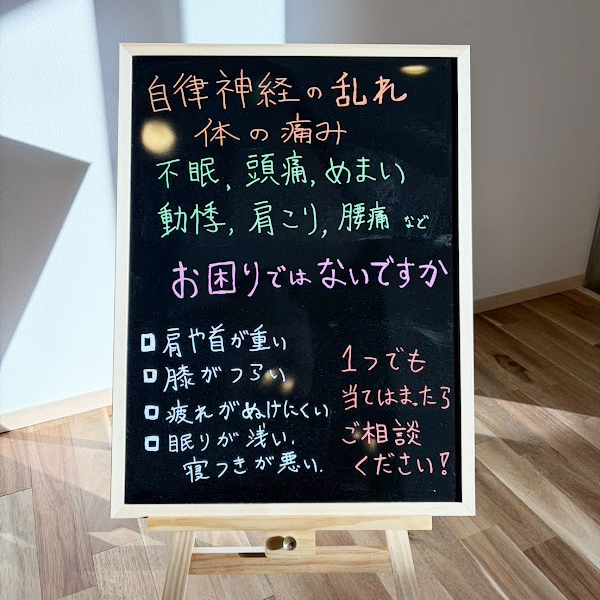 自律神経の乱れ
体の痛み
不眠, 頭痛, めまい
動悸, 肩こり, 腰痛 など
お困りではないですか
肩や首が重い
膝がつらい
疲れがぬけにくい
眠りが浅い.
寝つきが悪い.
1つでも
当てはまったら
ご相談
ください!